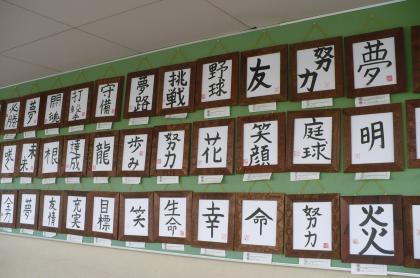 必勝 夢 開花 打込 守備 夢路 挑戦 野球 友 努力 夢
咲 未来 根 達成 龍 歩み 努力 花 笑顔 庭球 明
全力 夢 友情 充実 目標 情 笑 生命 幸 命 努力 炎